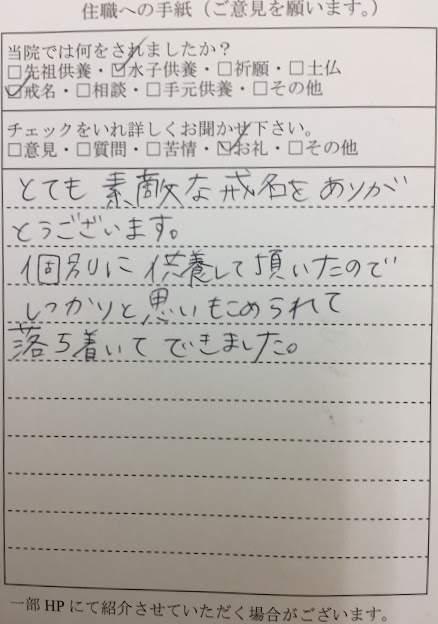 住職への手紙（ご意見を願います。）
当院では何をされましたか？
□先祖供養・☑水子供養・□祈願・□土仏
☑戒名・□相談・□手元供養・□その他
チェックをいれ詳しくお聞かせ下さい。
□意見・□質問・□苦情・☑お礼・□その他
とても素敵な戒名をありが
とうございます。
個別に供養して頂いたので
しっかりと思いもこめられて
落ち着いてできました。
一部HPにて紹介させていただく場合がございます。